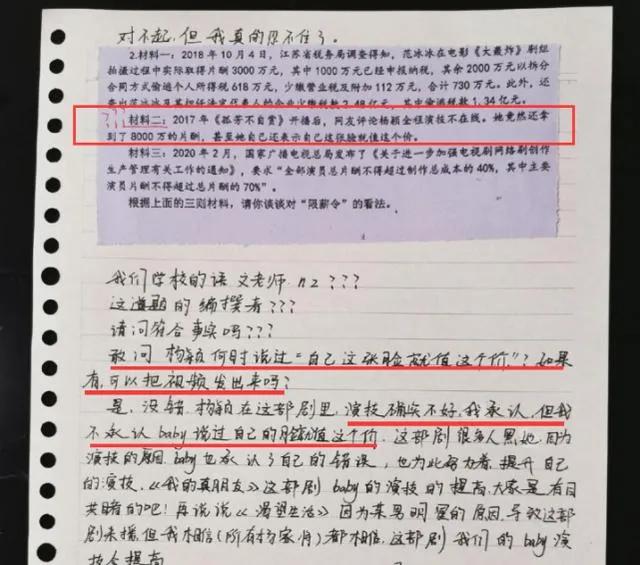 对不起,但我真的忍不住了。
2.材料一:2018年10月4日,江苏省税务局调查得知,范冰冰在电影《大轰炸》剧组
拍摄过程中实际取得片酬3000万元,其中1000万元已经申报纳税,其余2000万元以拆分
合同方式偷逃个人所得税618万元,少缴营业税及附加112万元,合计730万元。此外,还
查出范冰冰及其担任法定代表人的企业少缴税款2.48亿元,其中偷逃税款1.34亿元。
???
材料二:2017年《孤芳不自赏》开播后,网友评论杨颖全程演技不在线。她竟然还拿
到了8000万的片酬,甚至她自己还表示自己这张脸就值这个价。
材料三:2020年2月,国家广播电视总局发布了《关于进一步加强电视剧网络剧创作
生产管理有关工作的通知》,要求“全部演员总片酬不得超过制作总成本的40%,其中主要
演员片酬不得超过总片酬的70%”。
根据上面的三则材料,请你谈谈对“限薪令”的看法。
我们学校的语文老师 nz???
这道题的编撰者???
请问符合事实吗???
敢问 杨颖何时说过“自己这张脸就值这个价”?如果
有,可以把视频发出来吗?
是,没错,杨颖在这部剧里,演技确实不好,我承认,但我
不承认baby说过自己的脸值这个价,这部剧很多人黑她,因为
演技的原因,baby也承认了自己的错误,也为此努力着,提升自己
的演技,《我的真朋友》这部剧baby的演技的提高,大家是有目
共睹的吧!再说说《渴望生活》因为某男明星的原因,导致这部
剧未播,但我相信(所有杨家月)都相信,这部剧我们的baby演
技会提高